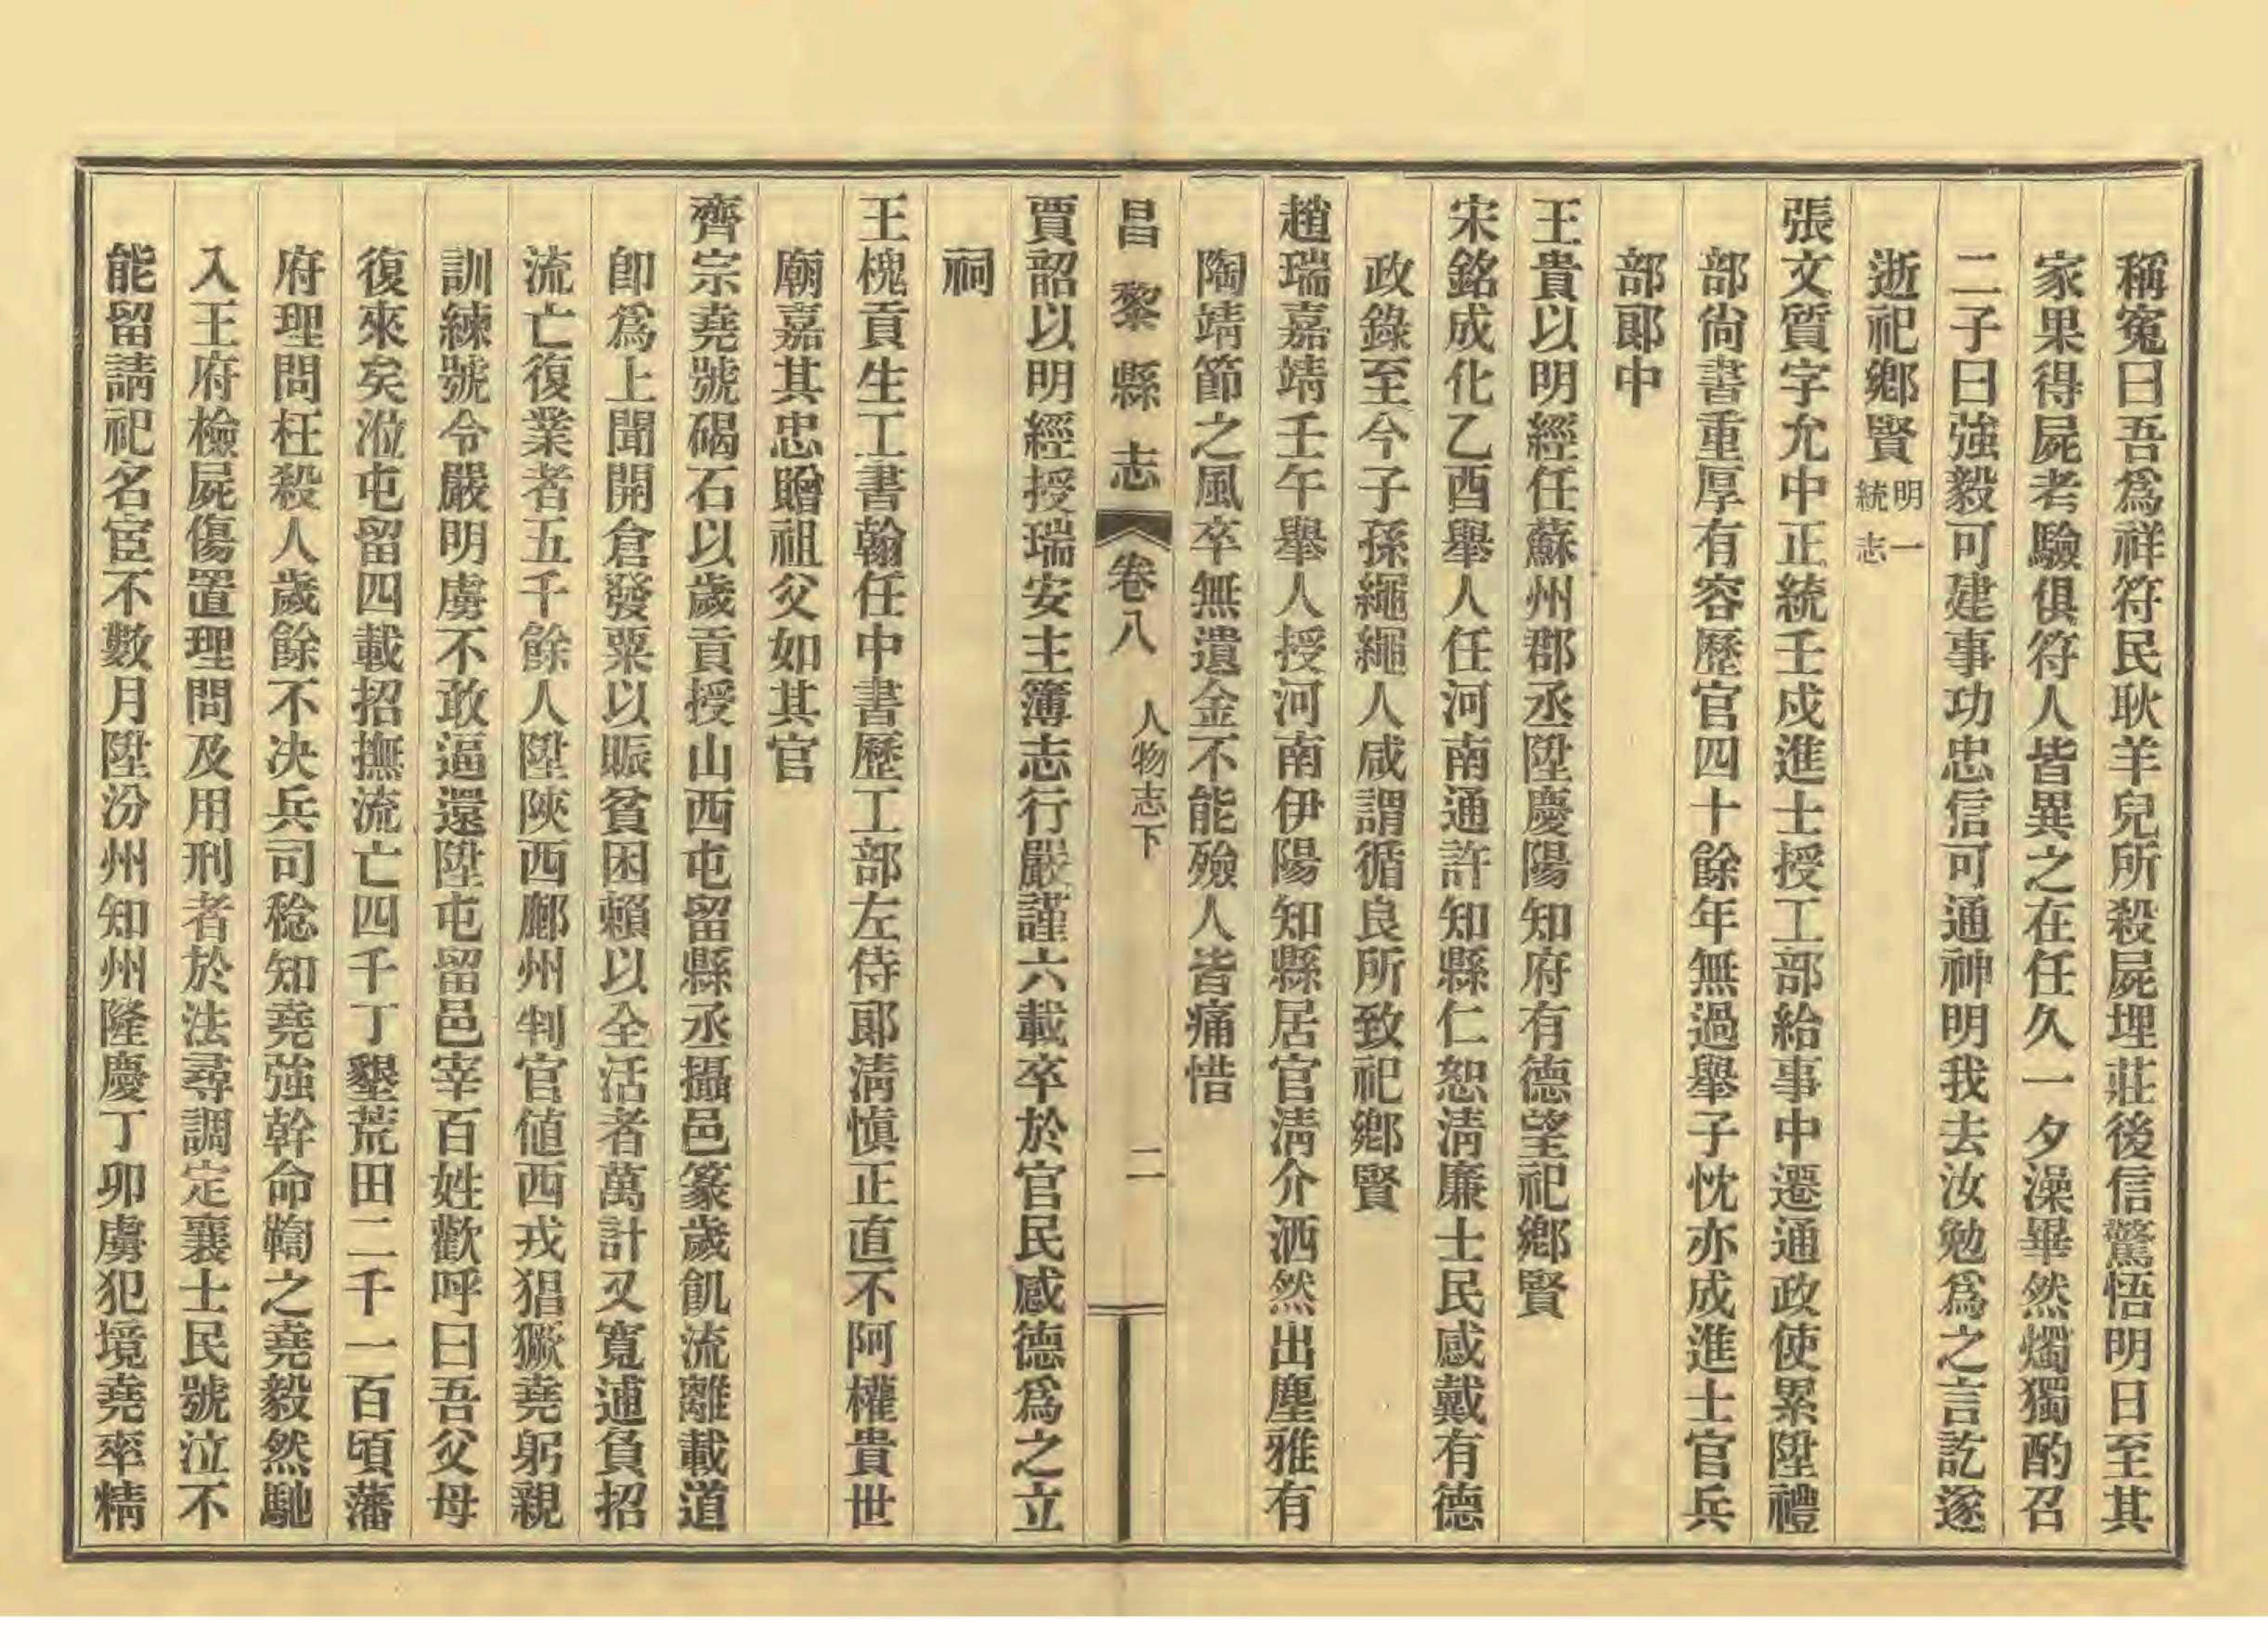 稱寃曰吾爲祥符民耿羊兒所殺屍埋莊後信驚悟明日至其
家果得屍考驗俱符人皆異之在任久一夕澡畢然燭獨酌召
二子曰強毅可建事功忠信可通神明我去汝勉爲之言訖遂
逝祀鄉賢明一統志
張文質字允中正統壬戌進士授工部給事中遷通政使累陞禮
部尙書重厚有容歷官四十餘年無過舉子忱亦成進士官兵
部郞中
王貴以明經任蘇州郡丞陞慶陽知府有德望祀鄉賢
宋銘成化乙酉舉人任河南通許知縣仁恕淸廉士民感戴有德
政錄至今子孫繩繩人咸謂循良所致祀鄉賢
趙瑞嘉靖壬午舉人授河南伊陽知縣居官淸介洒然出塵雅有
陶靖節之風卒無遺金不能殮人皆痛惜
昌黎縣志 卷八 人物志下 二
賈韶以明經授瑞安主簿志行嚴謹六載卒於官民感德爲之立
祠
王槐貢生工書翰任中書歷工部左侍郞淸愼正直不阿權貴世
廟嘉其忠贈祖父如其官
齊宗堯號碣石以歲貢授山西屯留縣丞攝邑篆歲飢流離載道
卽爲上聞開倉發粟以賑貧困賴以全活者萬計又寬逋負招
流亡復業者五千餘人陞陝西鄜州判官値西戎猖獗堯躬親
訓練號令嚴明虜不敢逼還陞屯留邑宰百姓歡呼曰吾父母
復來矣涖屯留四載招撫流亡四千丁墾荒田二千一百頃藩
府理問枉殺人歲餘不决兵司稔知堯強幹命鞫之堯毅然馳
入王府檢屍傷置理問及用刑者於法尋調定襄士民號泣不
能留請祀名宦不數月陞汾州知州隆慶丁卯虜犯境堯率精